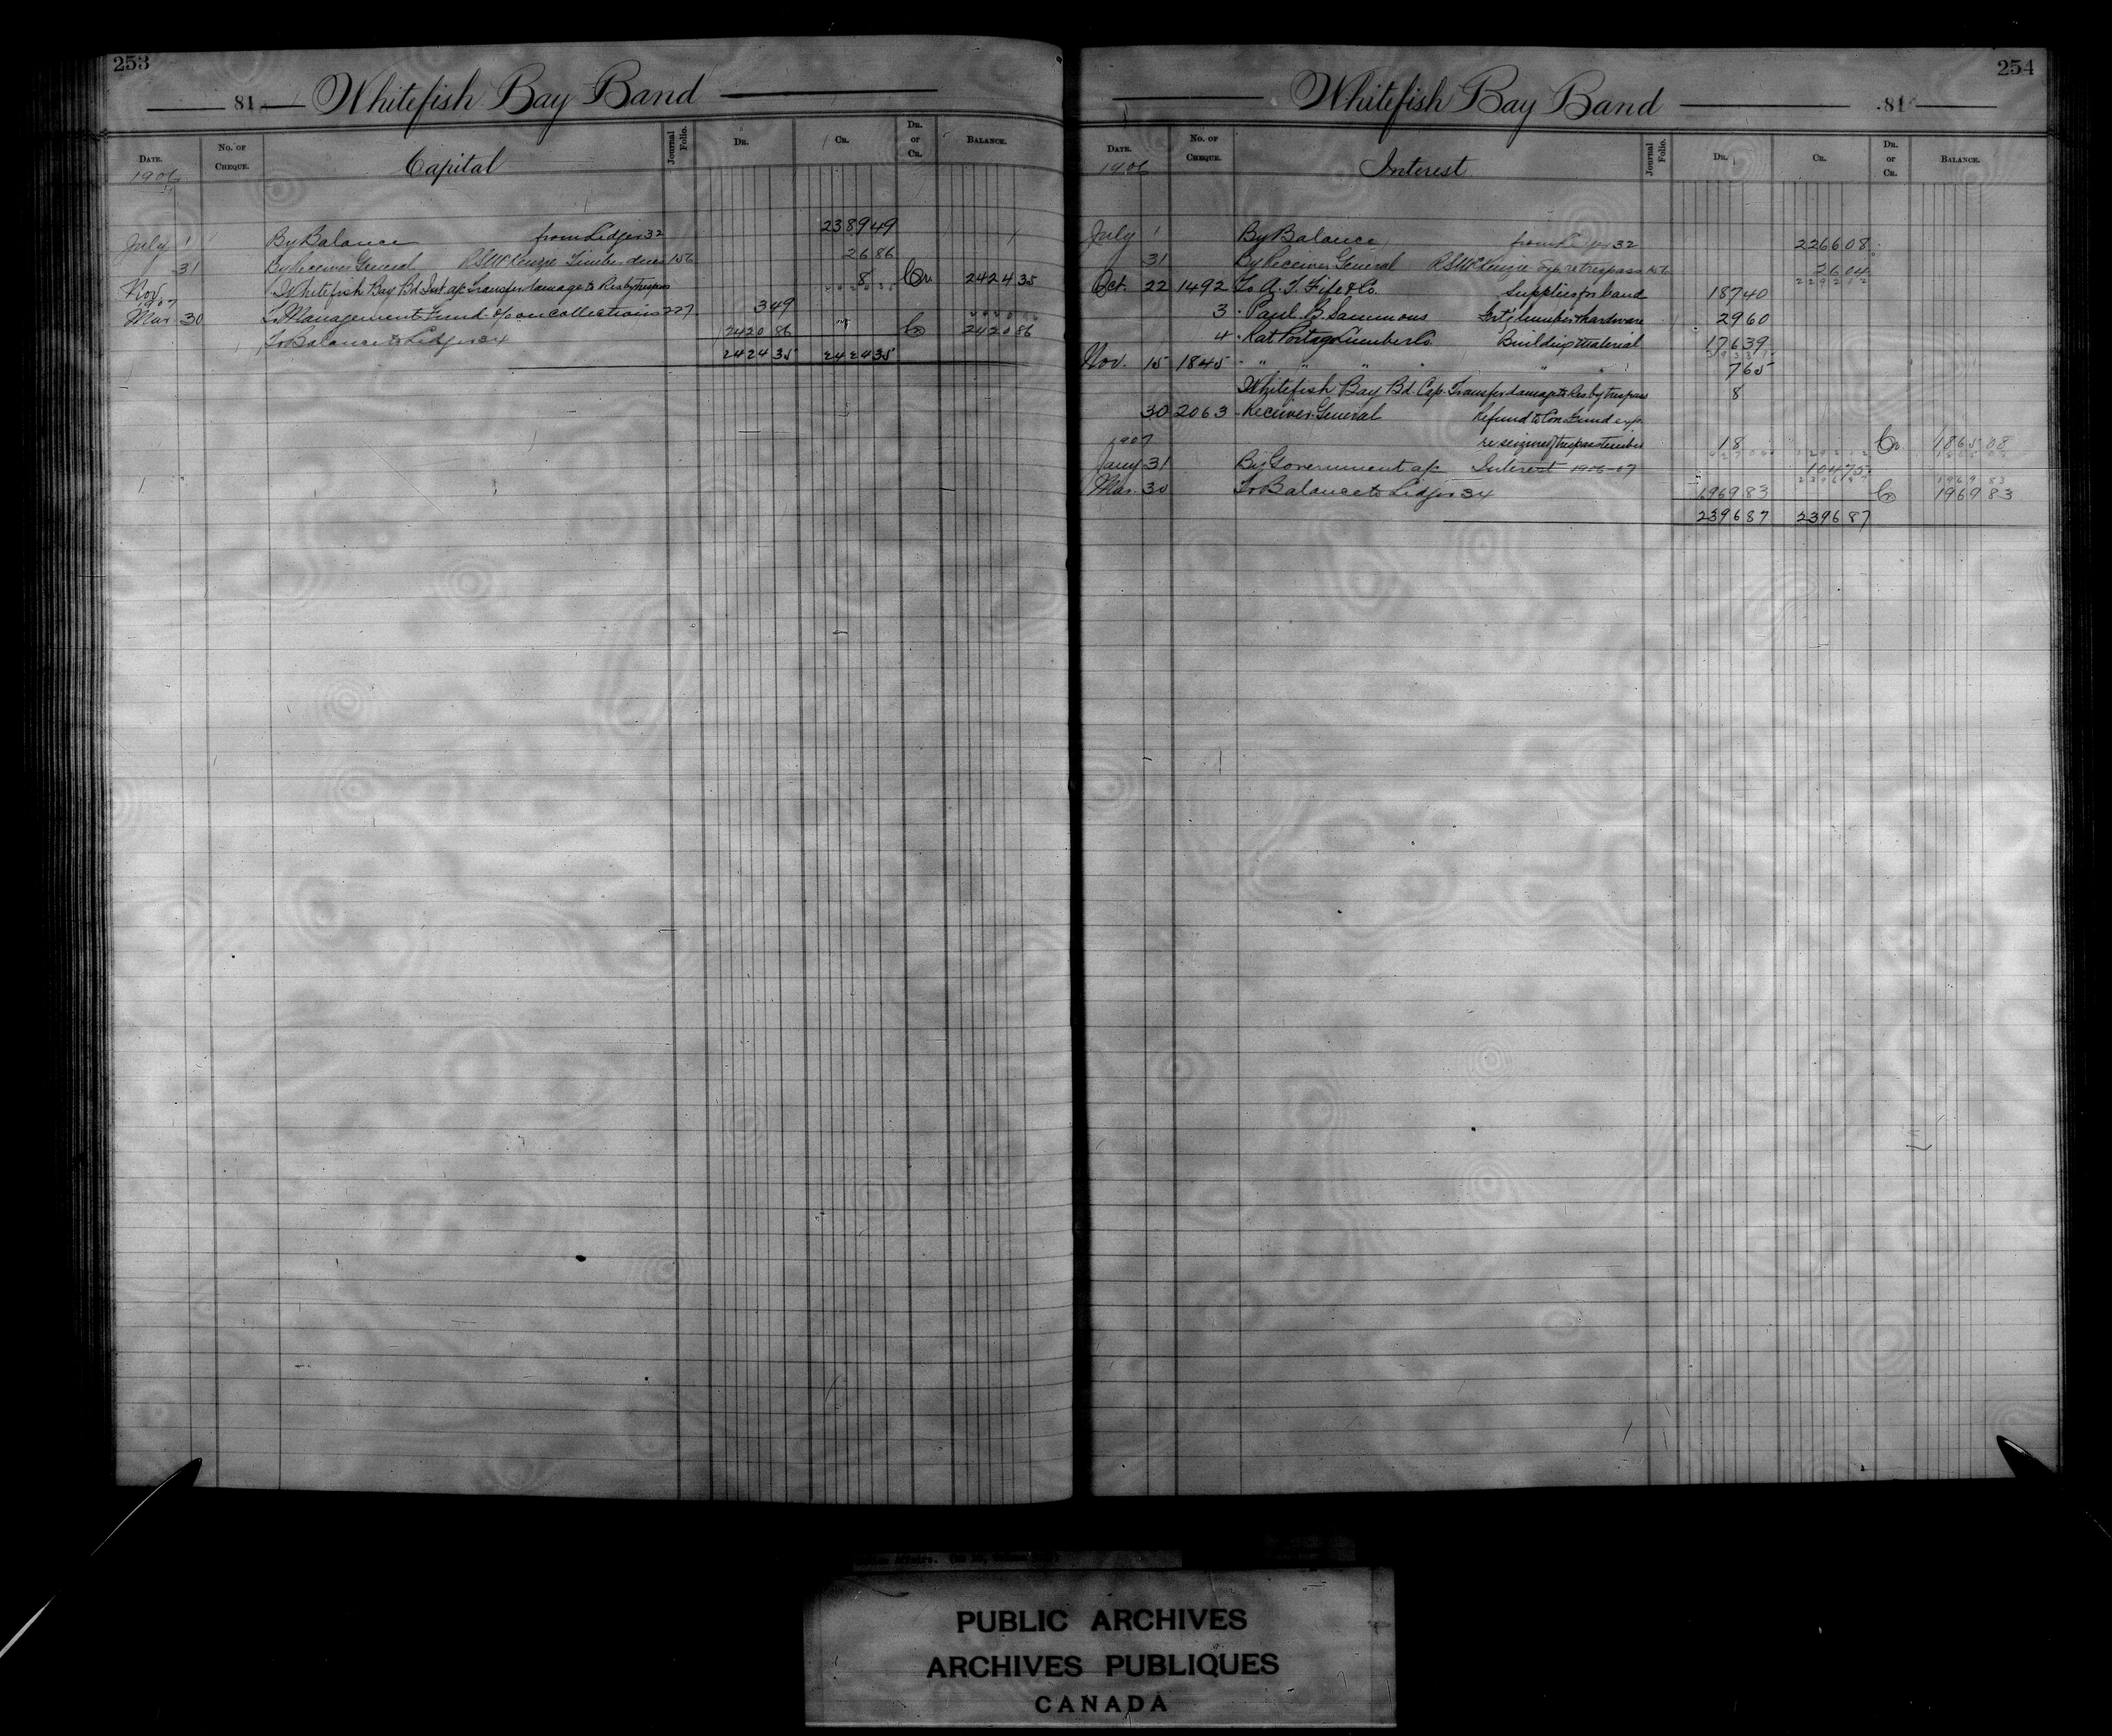 253
81 Whitefish Bay Band
DATE. No. OF CHEQUE. Capital Journal Folio. DR. CR. DR. or CR. BALANCE.
1906
July 1 By Balance from Ledger 32 2389 49
31 By Receiver General RS McKenzie Timber dues 156 26 86
Nov Whitefish Bay Bd Int a/c Transfer damage to Res by trespass 8 Cr 2424 35
1907
Mar 30 To Management Fund % on collections 227 3 49
To Balance to Ledger 34 2420 86 Cr 2420 86
2424 35 2424 35
254
Whitefish Bay Band 81
DATE. No. OF CHEQUE. Interest Journal Folio. DR. CR. DR. or CR. BALANCE.
1906
July 1 By Balance from Ledger 32 2266 08
31 By Receiver General RS McKenzie Exp re trespass 26 04
2292 12
Oct. 22 1492 To A. T. Fife & Co. Supplies for band 187 40
3 " Paul B. Sammons lumber & hardware 29 60
4 " Rat Portage Lumber Co. Building Material 176 39
Nov. 15 1845 " " " " " " 7 65
Whitefish Bay Bd. Cap. Transfer damage to Res by trespass 8
30 2063 " Receiver General Refund to Con Fund exp.
re seizure of trespass timber 18 Cr 1865 08
1907
Jany 31 By Government a/c Interest 1906-07 104 75
2396 87 1969 83
Mar. 30 To Balance to Ledger 34 1969 83 Cr 1969 83
2396 87 2396 87
PUBLIC ARCHIVES
ARCHIVES PUBLIQUES
CANADA